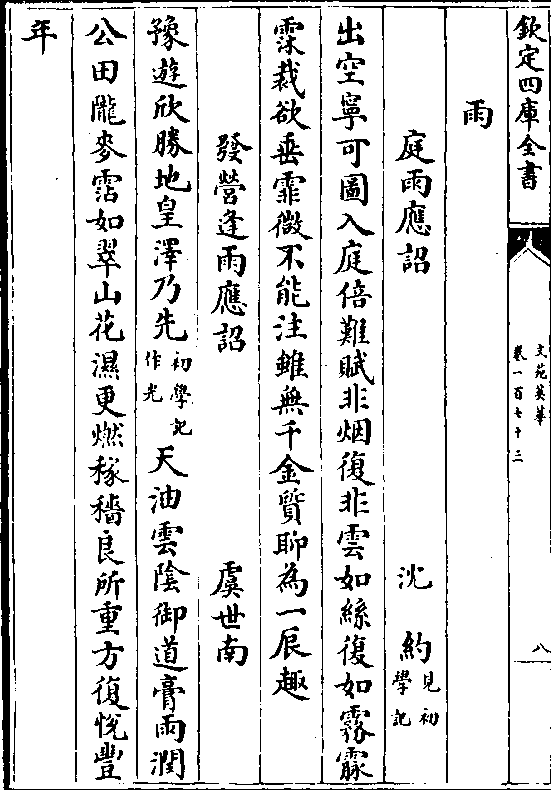 欽定四庫全書
文苑英華
卷一百七十三
八
雨
庭雨應詔
沈約見初學記
出空寧可圖入庭倍難賦非烟復非雲如絲復如霧霢
霂裁欲垂霏微不能注雖無千金質聊為一辰趣
發營逢雨應詔
虞世南
豫遊欣勝地皇澤乃先初學記作光天油雲陰御道膏雨潤
公田隴麥霑如翠山花濕更燃稼穡良所重方復悅豐
年